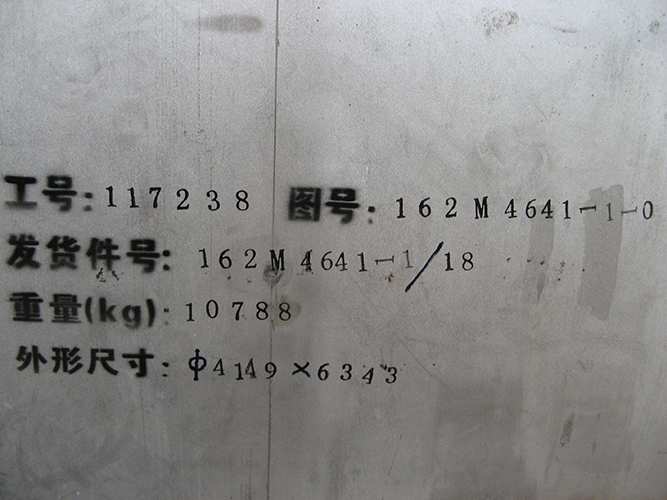 工号:117238 图号:162M4641-1-0
发货件号:162M4641-1/18
重量(kg):10788
外形尺寸:φ4149×6343